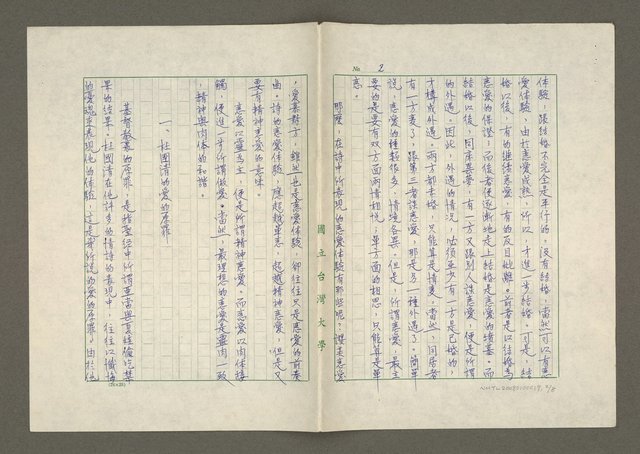 No. 2
體驗，跟結婚不完全是平行的，沒有結婚，當然可以有戀
愛體驗，由於戀愛成熟，所以，才進一步結婚。可是，結
婚以後，有的繼續戀愛，有的反目仳離。前者是以結婚為
戀愛的保證，而後者便逐漸地走上結婚是戀愛的墳墓。而
結婚以後，同床異夢，有一方又跟別人談戀愛，便是所謂
的外遇。因此，外遇的情況，必須至少有一方是已婚的，
才構成外遇。兩方都未婚，只能算是情變。當然，同居者
有一方變了，跟第三者談戀愛，那是另一種外遇了。簡單
說，戀愛的種類很多，情境各異。但是，所謂戀愛，最主
要的是要有雙方面兩情相悅；單方面的相思，只能算是單
戀。
那麼，在詩中所表現的戀愛體驗有那些呢？談走戀愛
國立台灣大學
，愛慕對方，雖然也是戀愛體驗，卻往往只是戀愛的前奏
曲。詩的戀愛體驗，應超越單思，起越精神戀愛，但是又
要有精神戀愛的意味。
戀愛以靈為主，便是所謂精神戀愛。而戀愛以肉体接
觸，便進一步所謂做愛。當然，最理想的戀愛是靈肉一致
，精神與肉体的和諧。
一、杜國清的愛的原罪
基督教義的原罪，是指聖經中所謂亞當與夏娃偷吃禁
果的結果。杜國清在他許多的情詩的表現中，往往以懺悔
的靈魂來表現他的体驗，這是我所說的愛的原罪。由於他
(25×24)